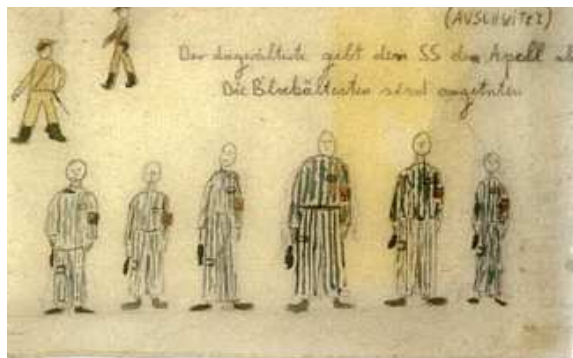 (AUSCHWITZ)
Der Lagerälteste gibt dem SS den Apell ab
Die Blockältesten sind angetreten